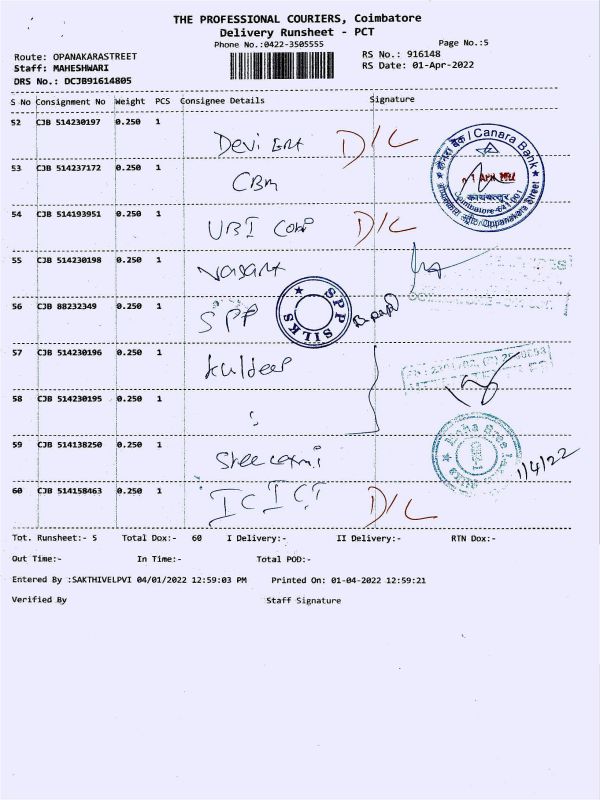 THE PROFESSIONAL COURIERS, Coimbatore
Delivery Runsheet - PCT
Phone No.:0422-3505555
Page No.:5
Route: OPANAKARASTREET
RS No.: 916148
Staff: MAHESHWARI
RS Date: 01-Apr-2022
DRS No.: DCJB91614805
S No Consignment No Weight PCS Consignee Details Signature
52 CJB 514230197 0.250 1
Devi D/L
53 CJB 514237172 0.250 1
CBM
केनरा बैंक / Canara Bank
कोयंबत्तूर
Coimbatore-641 001
Oppanakara Street
54 CJB 514193951 0.250 1
UBI D/L
55 CJB 514230198 0.250 1
Vasant
56 CJB 88232349 0.250 1
SPP
SPP SILKS
57 CJB 514230196 0.250 1
Kuldeep
58 CJB 514230195 0.250 1
59 CJB 514138250 0.250 1
Sree
1/4/22
60 CJB 514158463 0.250 1
ICICI D/L
Tot. Runsheet:- 5 Total Dox:- 60 I Delivery:- II Delivery:- RTN Dox:-
Out Time:- In Time:- Total POD:-
Entered By :SAKTHIVELPVI 04/01/2022 12:59:03 PM Printed On: 01-04-2022 12:59:21
Verified By Staff Signature